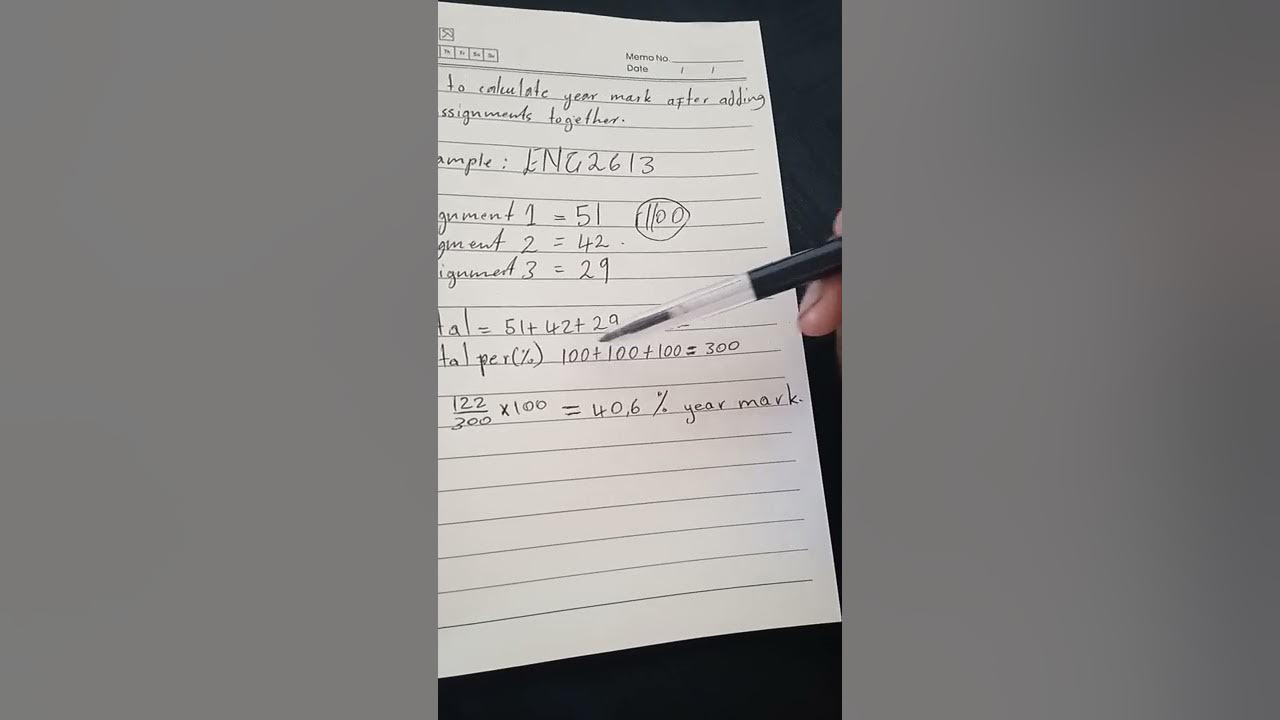 Th Fr Sa Su
Memo No.
Date / /
to calculate year mark after adding
ssignments together.
ample: ENG2613
gnment 1 = 51 /100
gment 2 = 42.
ignment 3 = 29
tal = 51+42+29
tal per(%) 100+100+100=300
122/300 x100 = 40,6 % year mark.